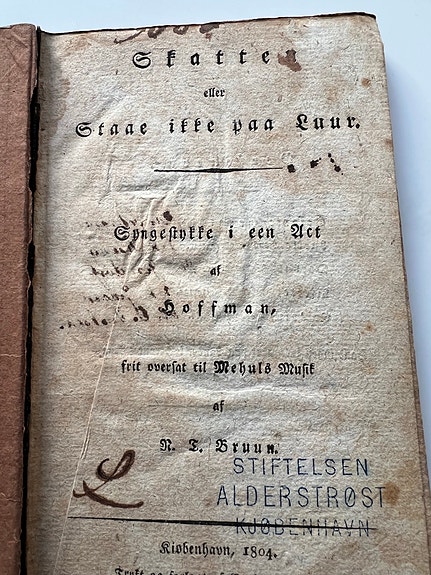 Skatten
eller
Staae ikke paa Luur.
Syngestykke i een Act
af
Hoffman,
frit oversat til Mehuls Musik
af
N. T. Bruun.
L
STIFTELSEN
ALDERSTRØST
KJØBENHAVN
Kiøbenhavn, 1804.
Trykt og